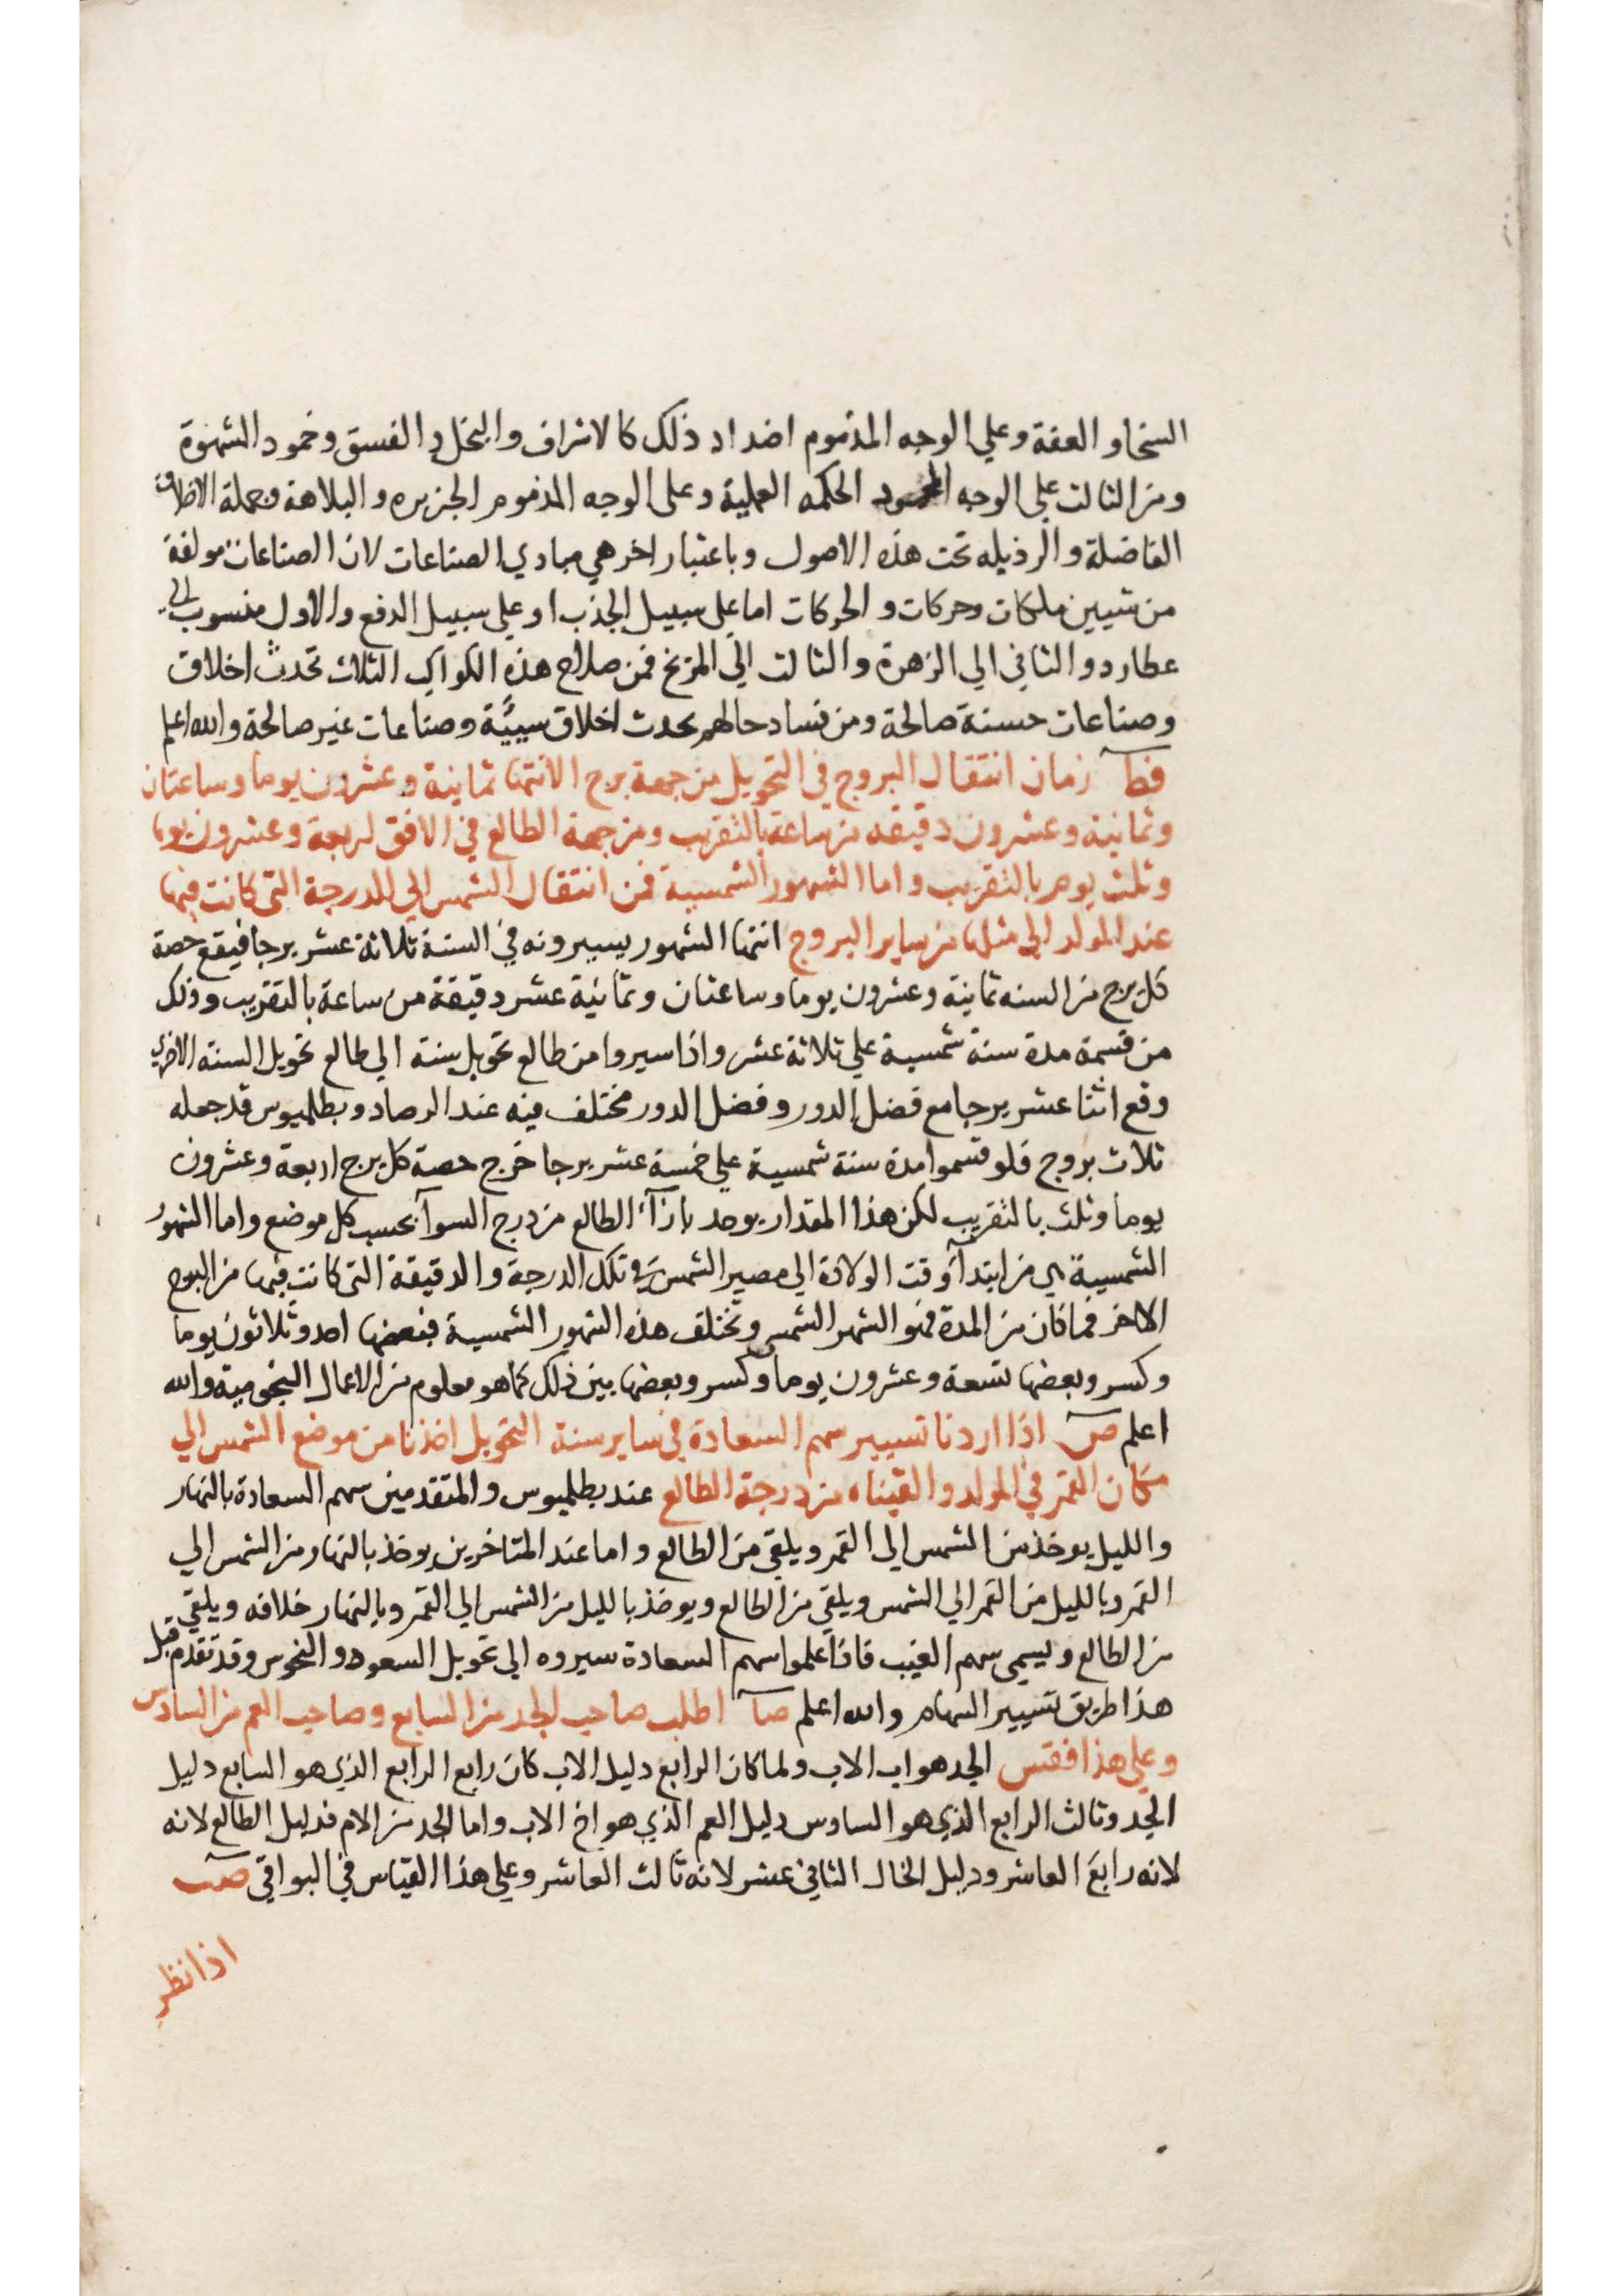 السخا و العفة وعلي الوجه المذموم اضداد ذلك كالاشراف والبخل و الفسق وخمود الشهوة
ومن الثالث علي الوجه المحمود الحكمه العملية وعلي الوجه المذموم الجزيره والبلاهة وجملة الاخلاق
الفاضلة والرذيله تحت هذه الاصول وباعتبار اخر هي مبادي الصناعات لان الصناعات مولفة
من شيين ملكات وحركات و الحركات اما علي سبيل الجذب او علي سبيل الدفع والاول منسوب الي
عطارد والثاني الي الزهرة والثالث الي المريخ فمن صلاح هذه الكواكب الثلاث تحدث اخلاق
وصناعات حسنة صالحة ومن فساد حالهم يحدث اخلاق سيئية وصناعات غير صالحة والله اعلم
فط زمان انتقال البروج في التحويل من جهة برج الانتها ثمانية وعشرون يوما وساعتان
وثمانية وعشرون دقيقه من ساعة بالتقريب ومن جهة الطالع في الافق اربعة وعشرون يوما
وثلث يوم بالتقريب واما الشهور الشمسية فمن انتقال الشمس الي الدرجة التي كانت فيها
عند المولد الي مثلها من ساير البروج انتها الشهور يسيرونه في السنة ثلاثة عشر برجا فيقع حصة
كل برج من السنه ثمانية وعشرون يوما وساعتان وثمانية عشر دقيقة من ساعة بالتقريب وذلك
من قسمة مدة سنة شمسية علي ثلاثة عشر واذا سيروا من طالع تحويل سنة الي طالع تحويل السنه الاخري
وقع اثنا عشر برجا مع فضل الدور وفضل الدور مختلف فيه عند الرصاد وبطلميوس قد جعله
ثلاث بروج فلو قسموا مدة سنة شمسية علي خمسة عشر برجا خرج حصة كل برج اربعة وعشرون
يوما وثلث بالتقريب لكن هذا المقدار يوجد بازآء الطالع من درج السوآ بحسب كل موضع واما الشهور
الشمسية هي من ابتدآ وقت الولادة الي مصير الشمس في تلك الدرجة والدقيقة التي كانت فيها من البرج
الاخر فما كان من المدة فهو الشهر الشمسي وتختلف هذه الشهور الشمسية فبعضها احد وثلاثون يوما
وكسر وبعضها تسعة وعشرون يوما وكسر وبعضها بين ذلك كما هو معلوم من الاعمال النجومية والله
اعلم ص اذا اردنا تسيير سهم السعادة في ساير سنة التحويل اخذنا من موضع الشمس الي
مكان القمر في المولد والقيناه من درجة الطالع عند بطلميوس والمتقدمين سهم السعادة بالنهار
والليل يوخذ من الشمس الي القمر ويلقي من الطالع واما عند المتاخرين يوخذ بالنهار من الشمس الي
القمر وبالليل من القمر الي الشمس ويلقي من الطالع ويوخذ بالليل من الشمس الي القمر وبالنهار خلافه ويلقي
من الطالع ويسمي سهم الغيب فاذا علموا سهم السعادة سيروه الي تحويل السعود والنحوس وقد تقدم قبل
هذا طريق تسيير السهام والله اعلم صا اطلب صاحب الجد من السابع وصاحب العم من السادس
وعلي هذا فقس الجد هو اب الاب ولما كان الرابع دليل الاب كان رابع الرابع الذي هو السابع دليل
الجد وثالث الرابع الذي هو السادس دليل العم الذي هو اخ الاب واما الجد من الام فدليل الطالع لانه
لانه رابع العاشر ودليل الخال الثاني عشر لانه ثالث العاشر وعلي هذا القياس في البواقي صب
اذا نظر